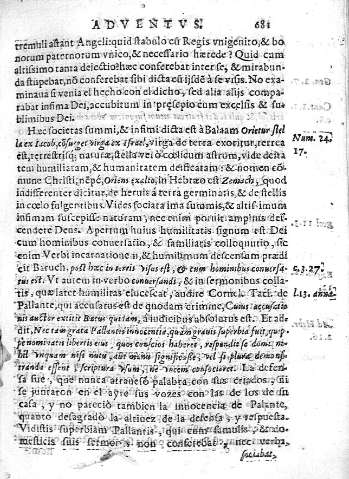 ADVENTUS. 681
tremuli astant Angeli: quid stabulo cũ Regis vnigenito, & bo
norum paternorum vnico, & necessario hærede? Quid cum
altissimo tanta deiectio? hæc conferebat inter se, & mirabun
da stupebat, nõ conferebat sibi dicta cũ ijsdẽ à se visis. No exa
minaua si venia el hecho con el dicho, sed alia alijs compa
rabat infima Dei, accubitum in præsepio cum excelsis & su
blimibus Dei.
Hæc societas summi, & infimi dicta est à Balaam Orietur stel
la ex Iacob, cõsurget virga ex Israel, virga de terra exoritur, terrea
est, terrestrisq; naturæ, stella verò cœlicum astrum, vide deita
tem humiliatam, & humanitatem deificatam: & nomen cõm
mune Christi, nẽpè, Oriens exalto, in Hebræo est Zemach, quod
indifferenter dicitur de herula è terra germinatis, & de stellis
in cœlo fulgentibus. Vides sociata ima summis, & altissimum
infimam suscepisse naturam, nec enim potuit amplius des-
cendere Deus. Apertum huius humilitatis signum est Dei
cum hominibus conuersatio, & familiaris colloquutio, sic
enim Verbi incarnatione, & humilitatem descensum præ
dicit Baruch. post hæc in terris visus est, & cum hominibus conuersa-
tus est. Ut autem in verbo conuersandi, & in sermonibus colla
tis, quæ lateat humilitas elucescat, audite Cornel. Tac. de
Pallante, qui accusatus est de quodam crimine, Cuius accusatio
nis auctor extitit Bæus quidam, à iudicibus absolutus est. Et ad
dit, Nec tam grata Pallantis innocentia, quàm grauis superbia fuit, quip
pe nominatis libertis eius, quos conscios haberet, respondit se domi
nihil vnquam nisi nutu, aut manu significasse, vel si plura demons-
tranda essent scriptura vsum, ne vocem consociaret. La defen
sa fuè, que nunca atrauessò palabra con sus criados, ni
se juntaron en el ayre sus vozes con las de los de su
casa, y no pareciò tambien la innocencia de Palante,
quanto desagradò la altiuez de la defensa, y respuesta.
Vidistis superbiam Pallantis, qui cum famulis, & do-
mesticis suis sermones non conferebat, nec verba
sociabat,
Num. 24.
17.
c. 3. 27.
l. 13. anna.